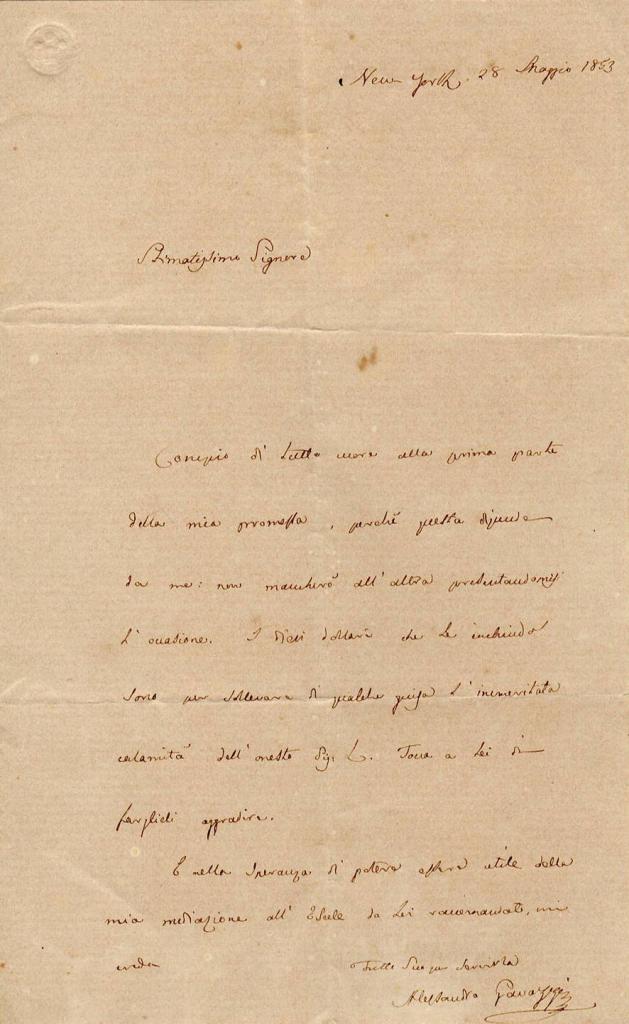 New York 28 Maggio 1853
Stimatissimo Signore
Compio di tutto cuore alla prima parte
della mia promessa, perchè questa dipende
da me: non mancherò all'altra presentandomisi
l'occasione. I dieci dollari che Le inchiudo
sono per sollevare di qualche guisa l'immeritata
calamità dell'onesto Sig. L. Tocca a Lei di
farglieli aggradire.
E nella speranza di potere essere utile della
mia mediazione all'Esule da Lei raccomandato, mi
creda
Tutto Suo per servirla
Alessandro Gavazzi